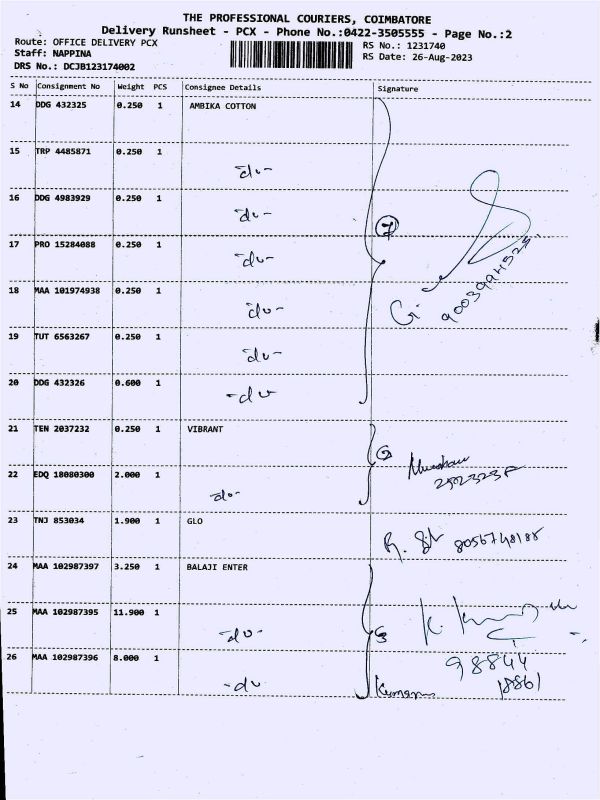 THE PROFESSIONAL COURIERS, COIMBATORE
Delivery Runsheet - PCX - Phone No.:0422-3505555 - Page No.:2
Route: OFFICE DELIVERY PCX
RS No.: 1231740
Staff: NAPPINA
RS Date: 26-Aug-2023
DRS No.: DCJB123174002
S No Consignment No Weight PCS Consignee Details Signature
14 DDG 432325 0.250 1 AMBIKA COTTON
15 TRP 4485871 0.250 1
-do-
16 DDG 4983929 0.250 1
-do-
7
17 PRO 15284088 0.250 1
-do-
18 MAA 101974938 0.250 1
-do-
G.
19 TUT 6563267 0.250 1
-do-
20 DDG 432326 0.600 1
-do-
21 TEN 2037232 0.250 1 VIBRANT
2
22 EDQ 18080300 2.000 1
-do-
23 TNJ 853034 1.900 1 GLO
R.
24 MAA 102987397 3.250 1 BALAJI ENTER
25 MAA 102987395 11.900 1
-do-
3
K.
26 MAA 102987396 8.000 1
98844
18861
-do-